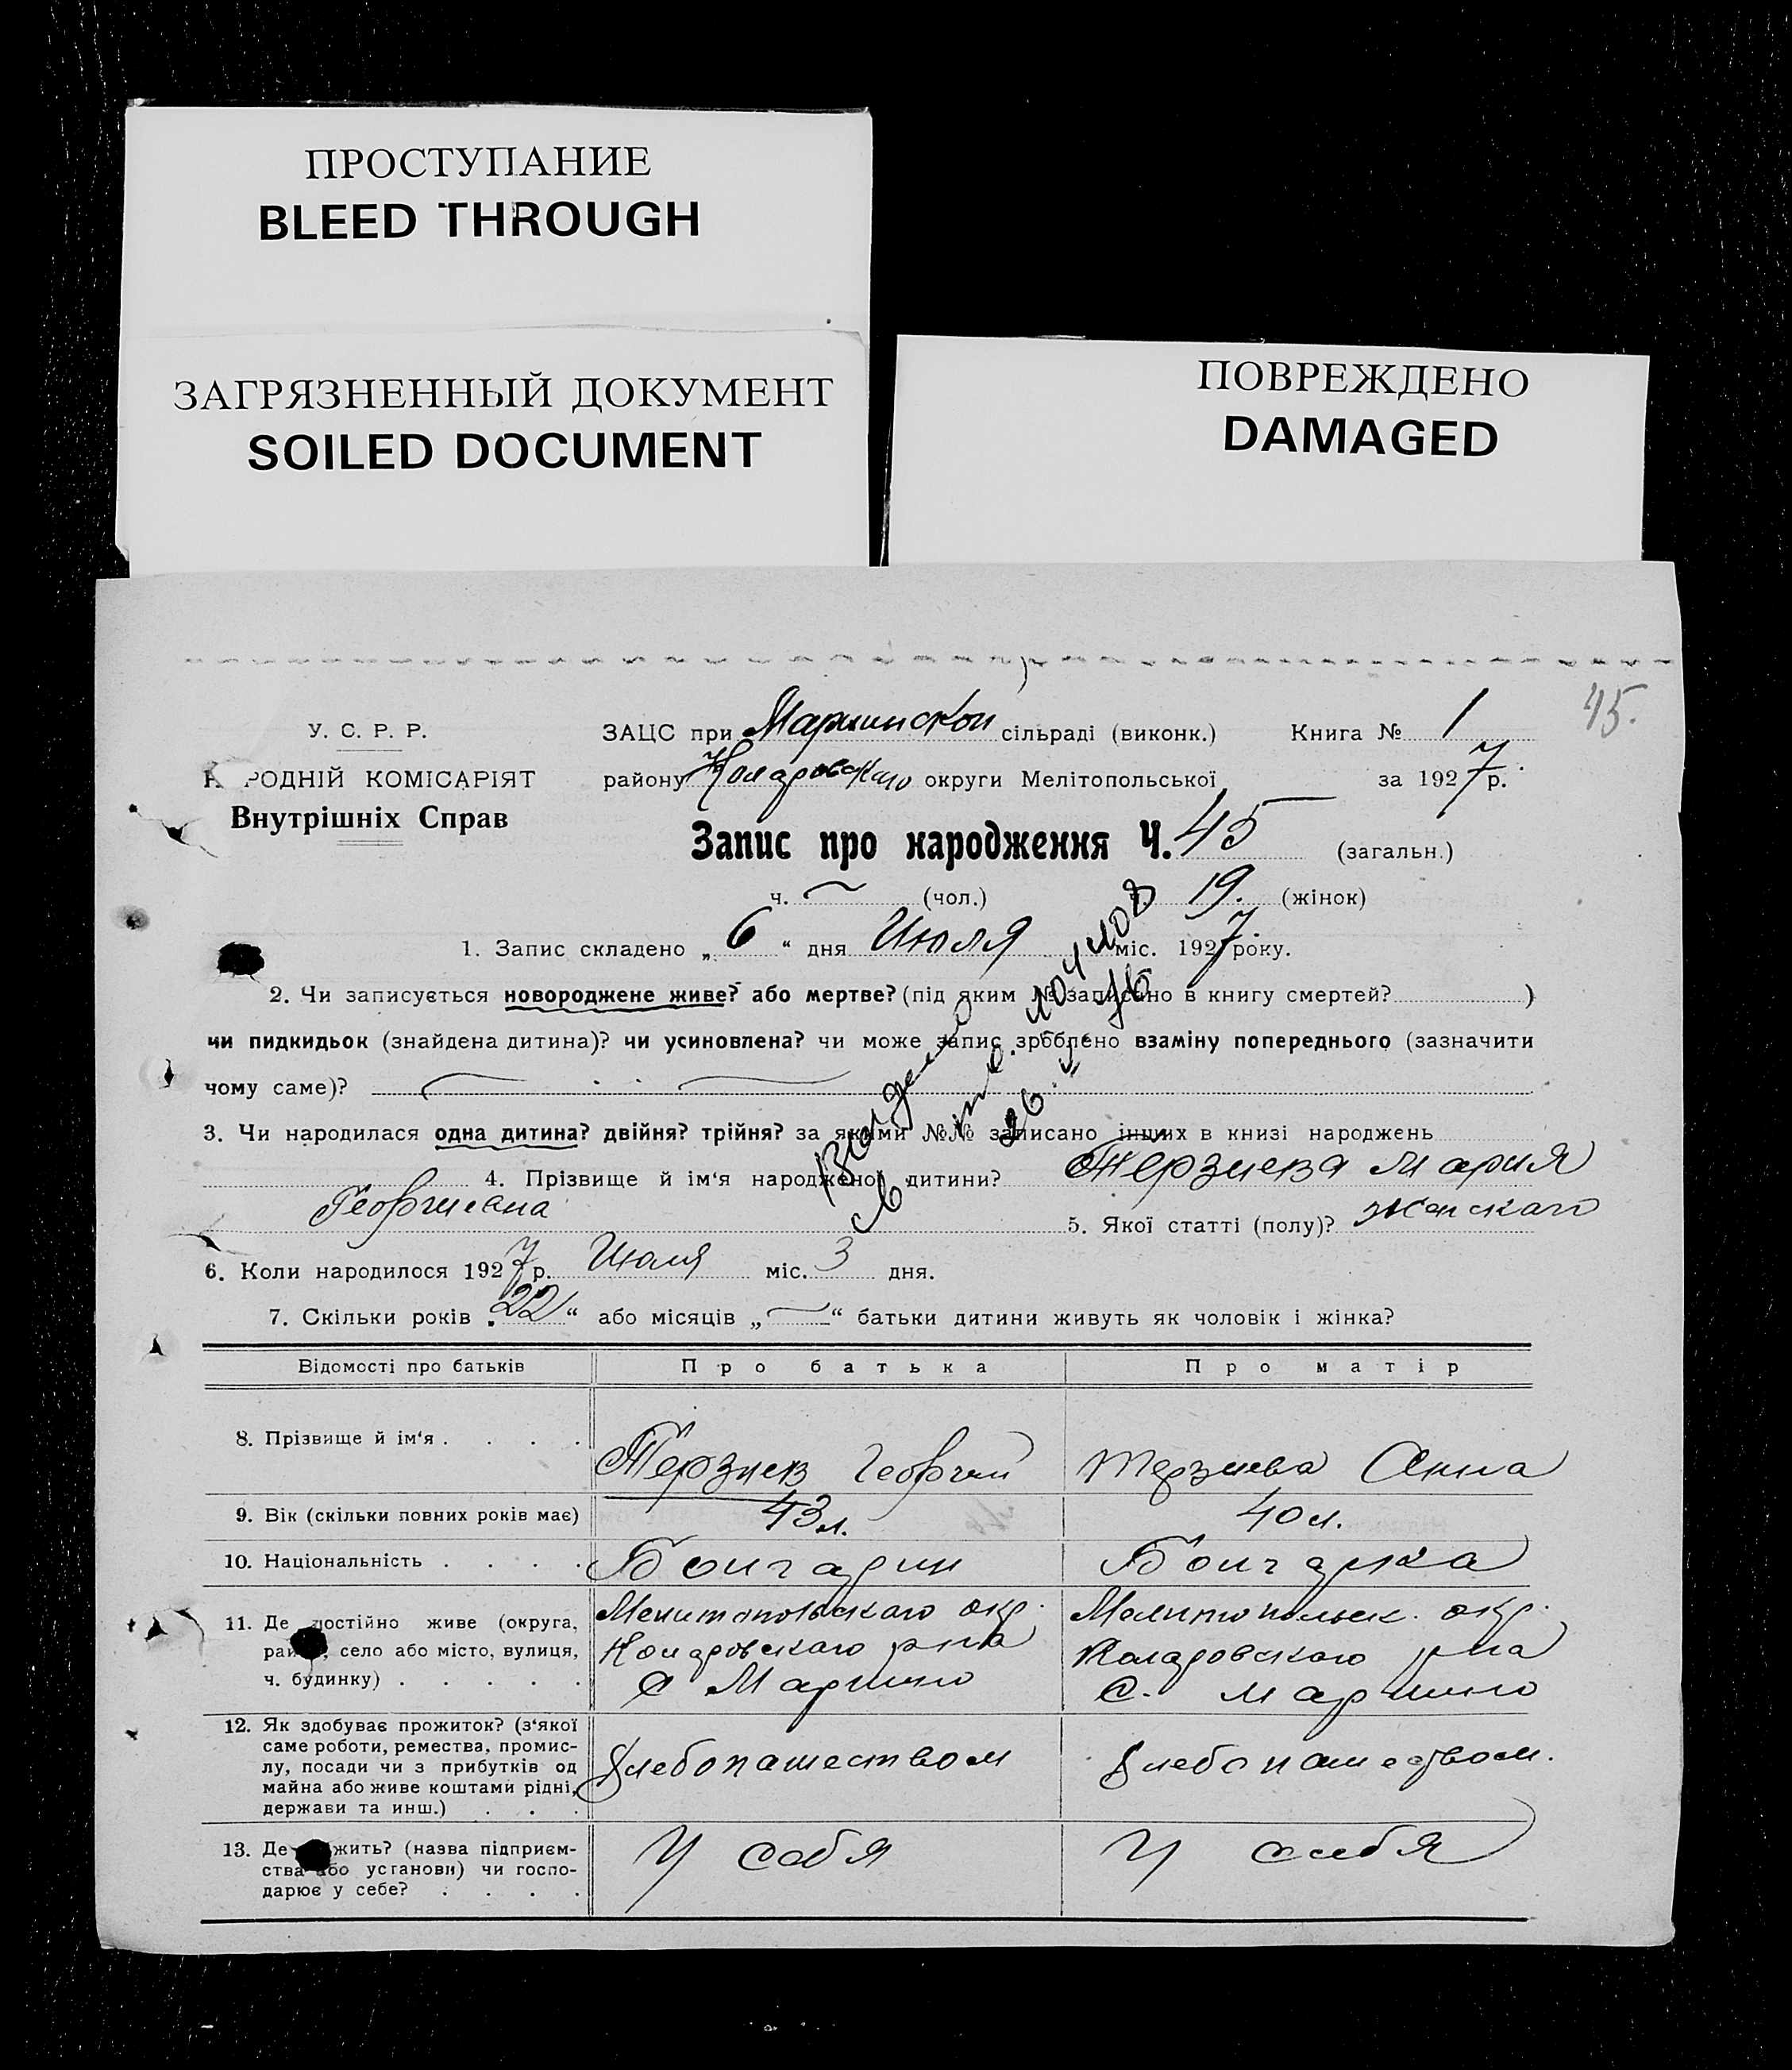 ПРОСТУПАНИЕ
BLEED THROUGH
ЗАГРЯЗНЕННЫЙ ДОКУМЕНТ
SOILED DOCUMENT
ПОВРЕЖДЕНО
DAMAGED
45.
У. С. Р. Р.
РОДНІЙ КОМІСАРІЯТ
Внутрішніх Справ
ЗАЦС при Мариинской сільраді (виконк.) Книга № 1
району Коларовского округи Мелітопольської за 1927 р.
Запис про народження Ч. 45 (загальн.)
ч. — (чол.) 19. (жінок)
1. Запис складено „ 6 “ дня Июля міс. 1927 року.
2. Чи записується новороджене живе? або мертве? (під яким № записано в книгу смертей? )
чи пидкидьок (знайдена дитина)? чи усиновлена? чи може запис зроблено взаміну попереднього (зазначити
чому саме)?
3. Чи народилася одна дитина? двійня? трійня? за якими №№ записано інших в книзі народжень
4. Прізвище й ім'я народженої дитини? Терзиева Мария
Георгиевна 5. Якої статті (полу)? женскаго
6. Коли народилося 1927 р. Июля міс. 3 дня.
7. Скільки років „ 22 “ або місяців „ — “ батьки дитини живуть як чоловік і жінка?
Відомості про батьків Про батька Про матір
8. Прізвище й ім'я . . . . Терзиев Георгий Терзиева Анна
9. Вік (скільки повних років має) 43 л. 40 л.
10. Національність . . . . Болгарин Болгарка
11. Де постійно живе (округа, село або місто, вулиця, ч. будинку) . . . . .
Мелитопольскаго окр. Мелитопольск. окр.
Коларовскаго рна Коларовскаго рна
С Марино С. Марино
12. Як здобуває прожиток? (з'якої
саме роботи, ремества, промис-
лу, посади чи з прибутків од
майна або живе коштами рідні,
держави та инш.) . . .
Хлебопашеством Хлебопашеством.
13. Де жить? (назва підприєм-
ства або установи) чи госпо-
дарює у себе? . . . .
У себя У себя